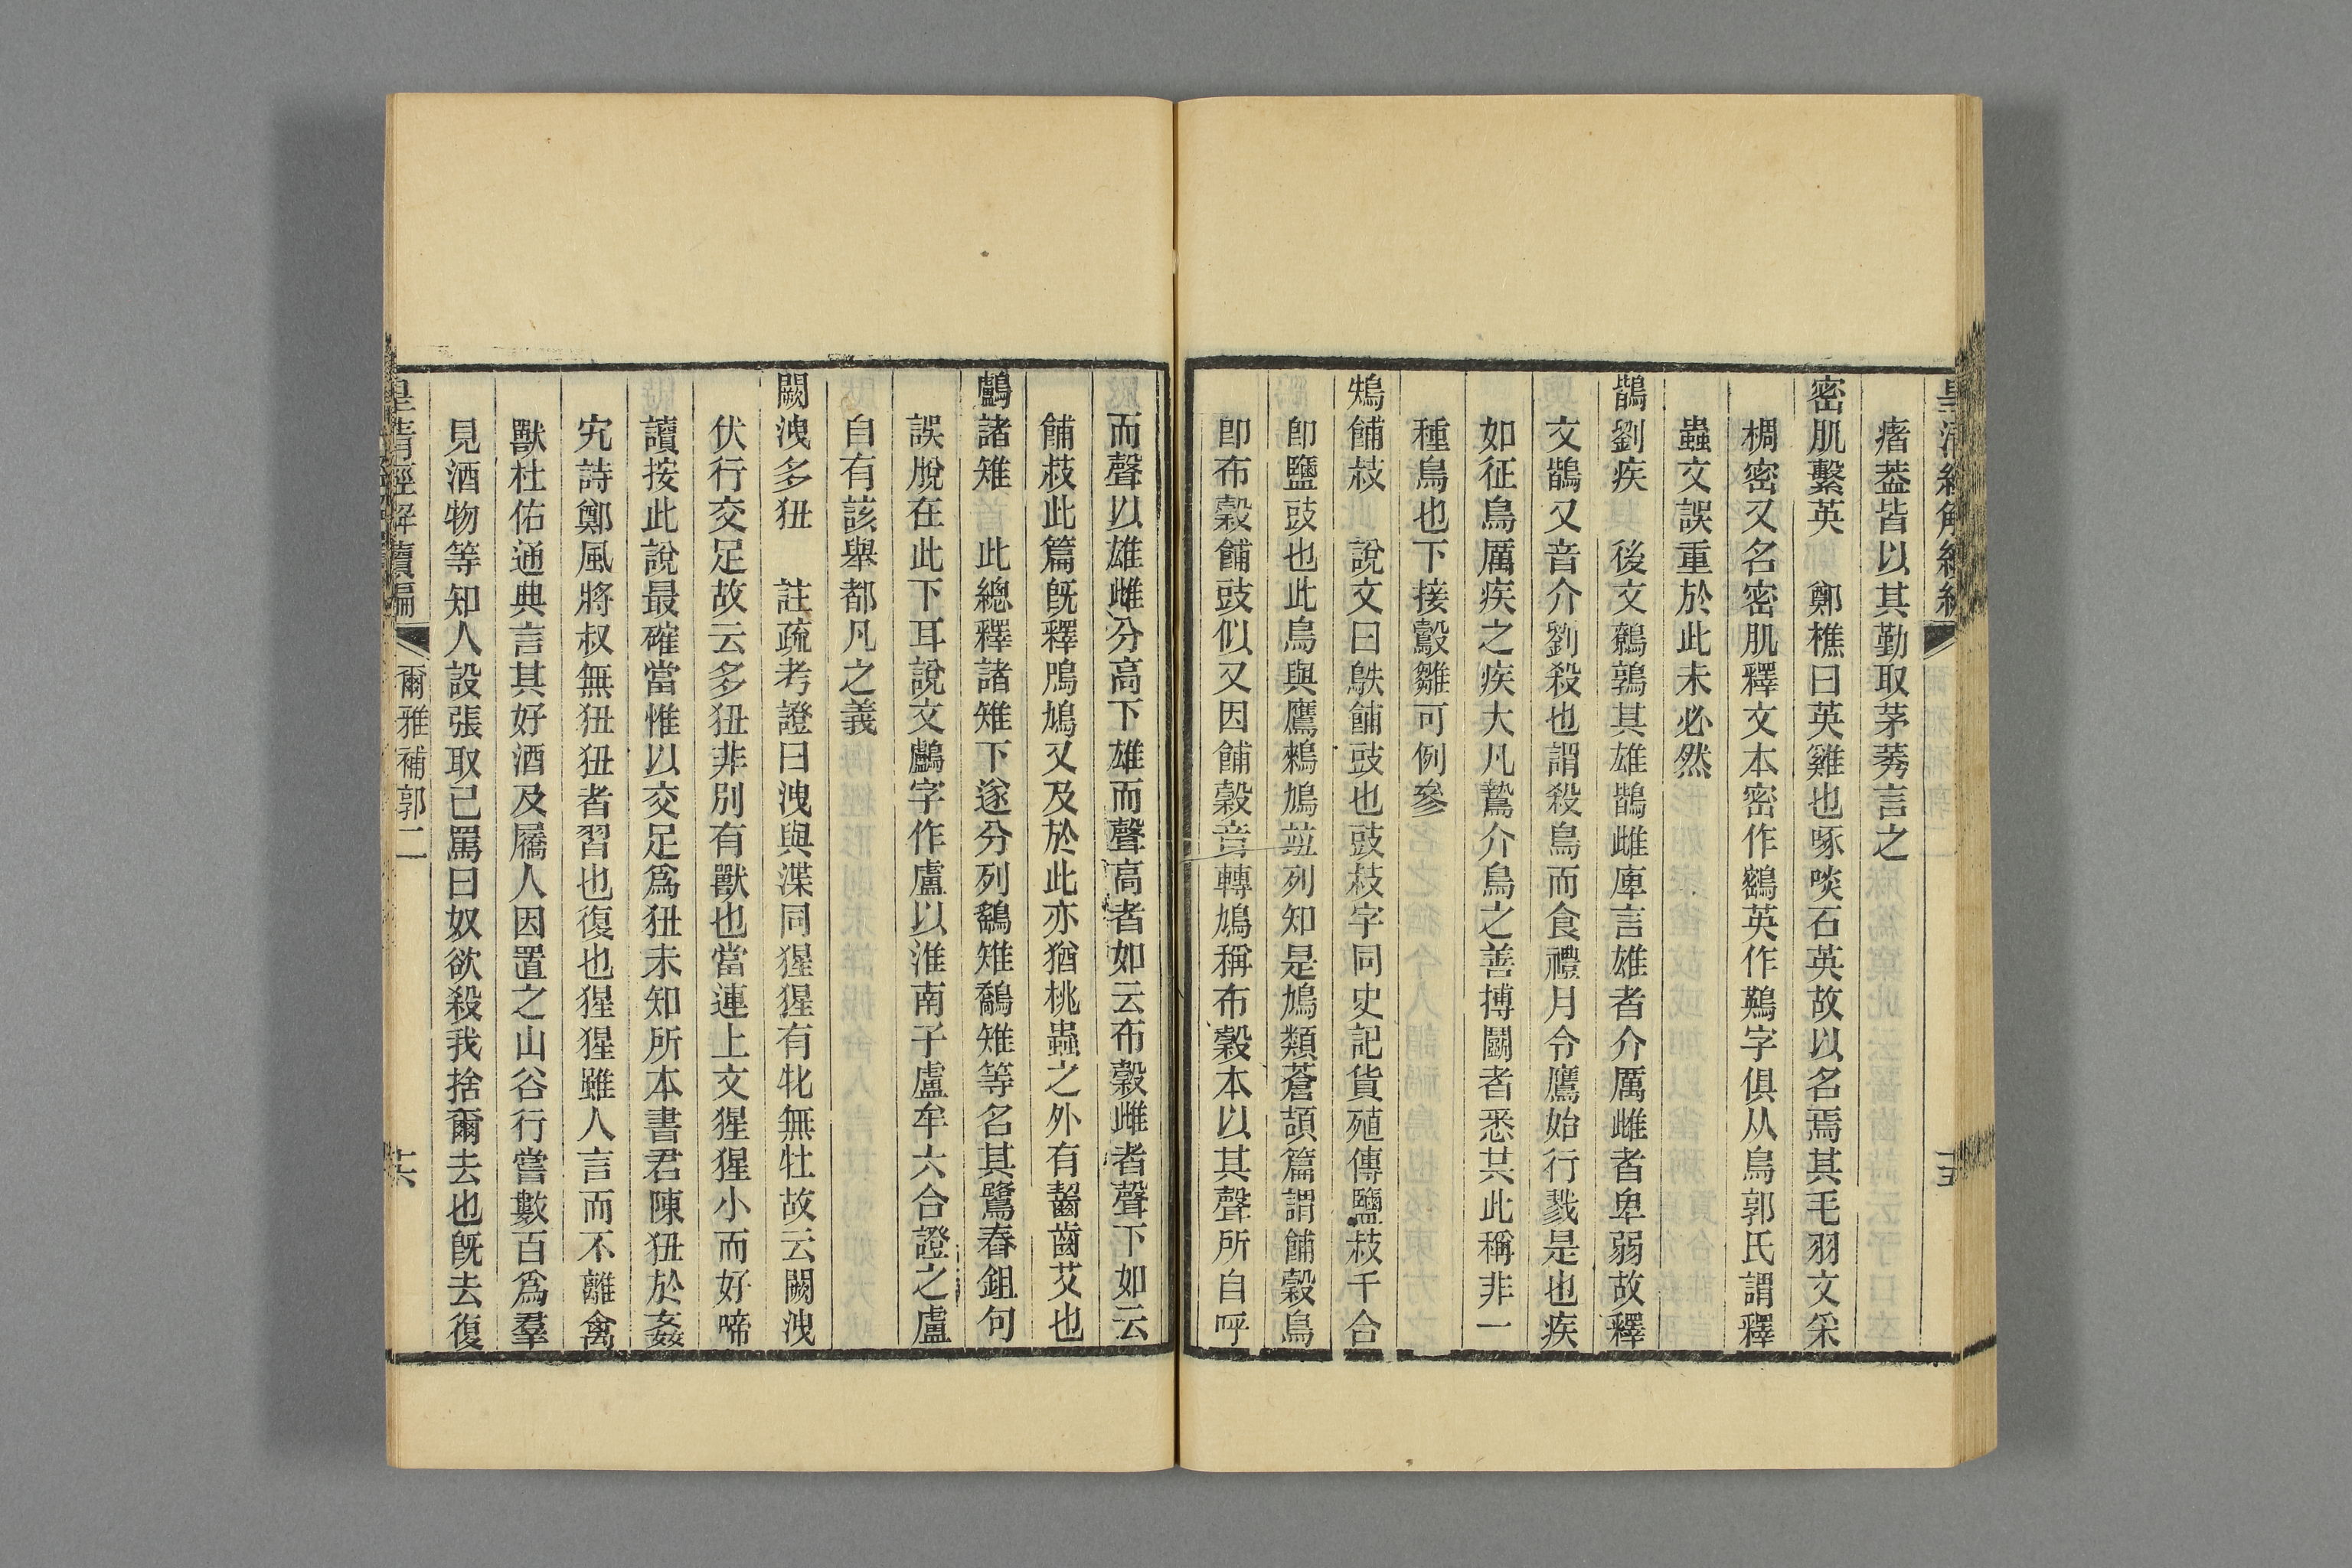 皇清經解續編
十五
瘏葢皆以其勤取茅莠言之
密肌繫英　鄭樵曰英雞也啄啖石英故以名焉其毛羽文采
椆密又名密肌釋文本密作鶴英作鶧字俱从鳥郭氏謂釋
蟲文誤重於此未必然
鵲劉疾　後文鷯鶉其雄鵲雌庳言雄者介厲雌者卑弱故釋
文鵲又音介劉殺也謂殺鳥而食禮月令鷹始行戮是也疾
如征鳥厲疾之疾大凡鷙介鳥之善搏鬭者悉共此稱非一
種鳥也下接鷇雛可例參
鴩餔敊　說文曰鴩餔豉也豉敊字同史記貨殖傳鹽敊千合
卽鹽豉也此鳥與鷹鶆鳩竝列知是鳩類蒼頡篇謂餔穀鳥
卽布穀餔豉似又因餔穀音轉鳩稱布穀本以其聲所自呼
而聲以雄雌分高下雄而聲高者如云布穀雌者聲下如云
餔敊此篇旣釋鳲鳩又及於此亦猶桃蟲之外有齧齒艾也
鸕諸雉　此總釋諸雉下遂分列鷂雉鷮雉等名其鷺舂鉏句
誤脫在此下耳說文鸕字作盧以淮南子盧牟六合證之盧
自有該舉都凡之義
闕洩多狃　註疏考證曰洩與渫同猩猩有牝無牡故云闕洩
伏行交足故云多狃非別有獸也當連上文猩猩小而好啼
讀按此說最確當惟以交足爲狃未知所本書君陳狃於姦
宄詩鄭風將叔無狃狃者習也復也猩猩雖人言而不離禽
獸杜佑通典言其好酒及屩人因置之山谷行嘗數百爲羣
見酒物等知人設張取已罵曰奴欲殺我捨爾去也旣去復
皇清經解續編
爾雅補郭二
十六